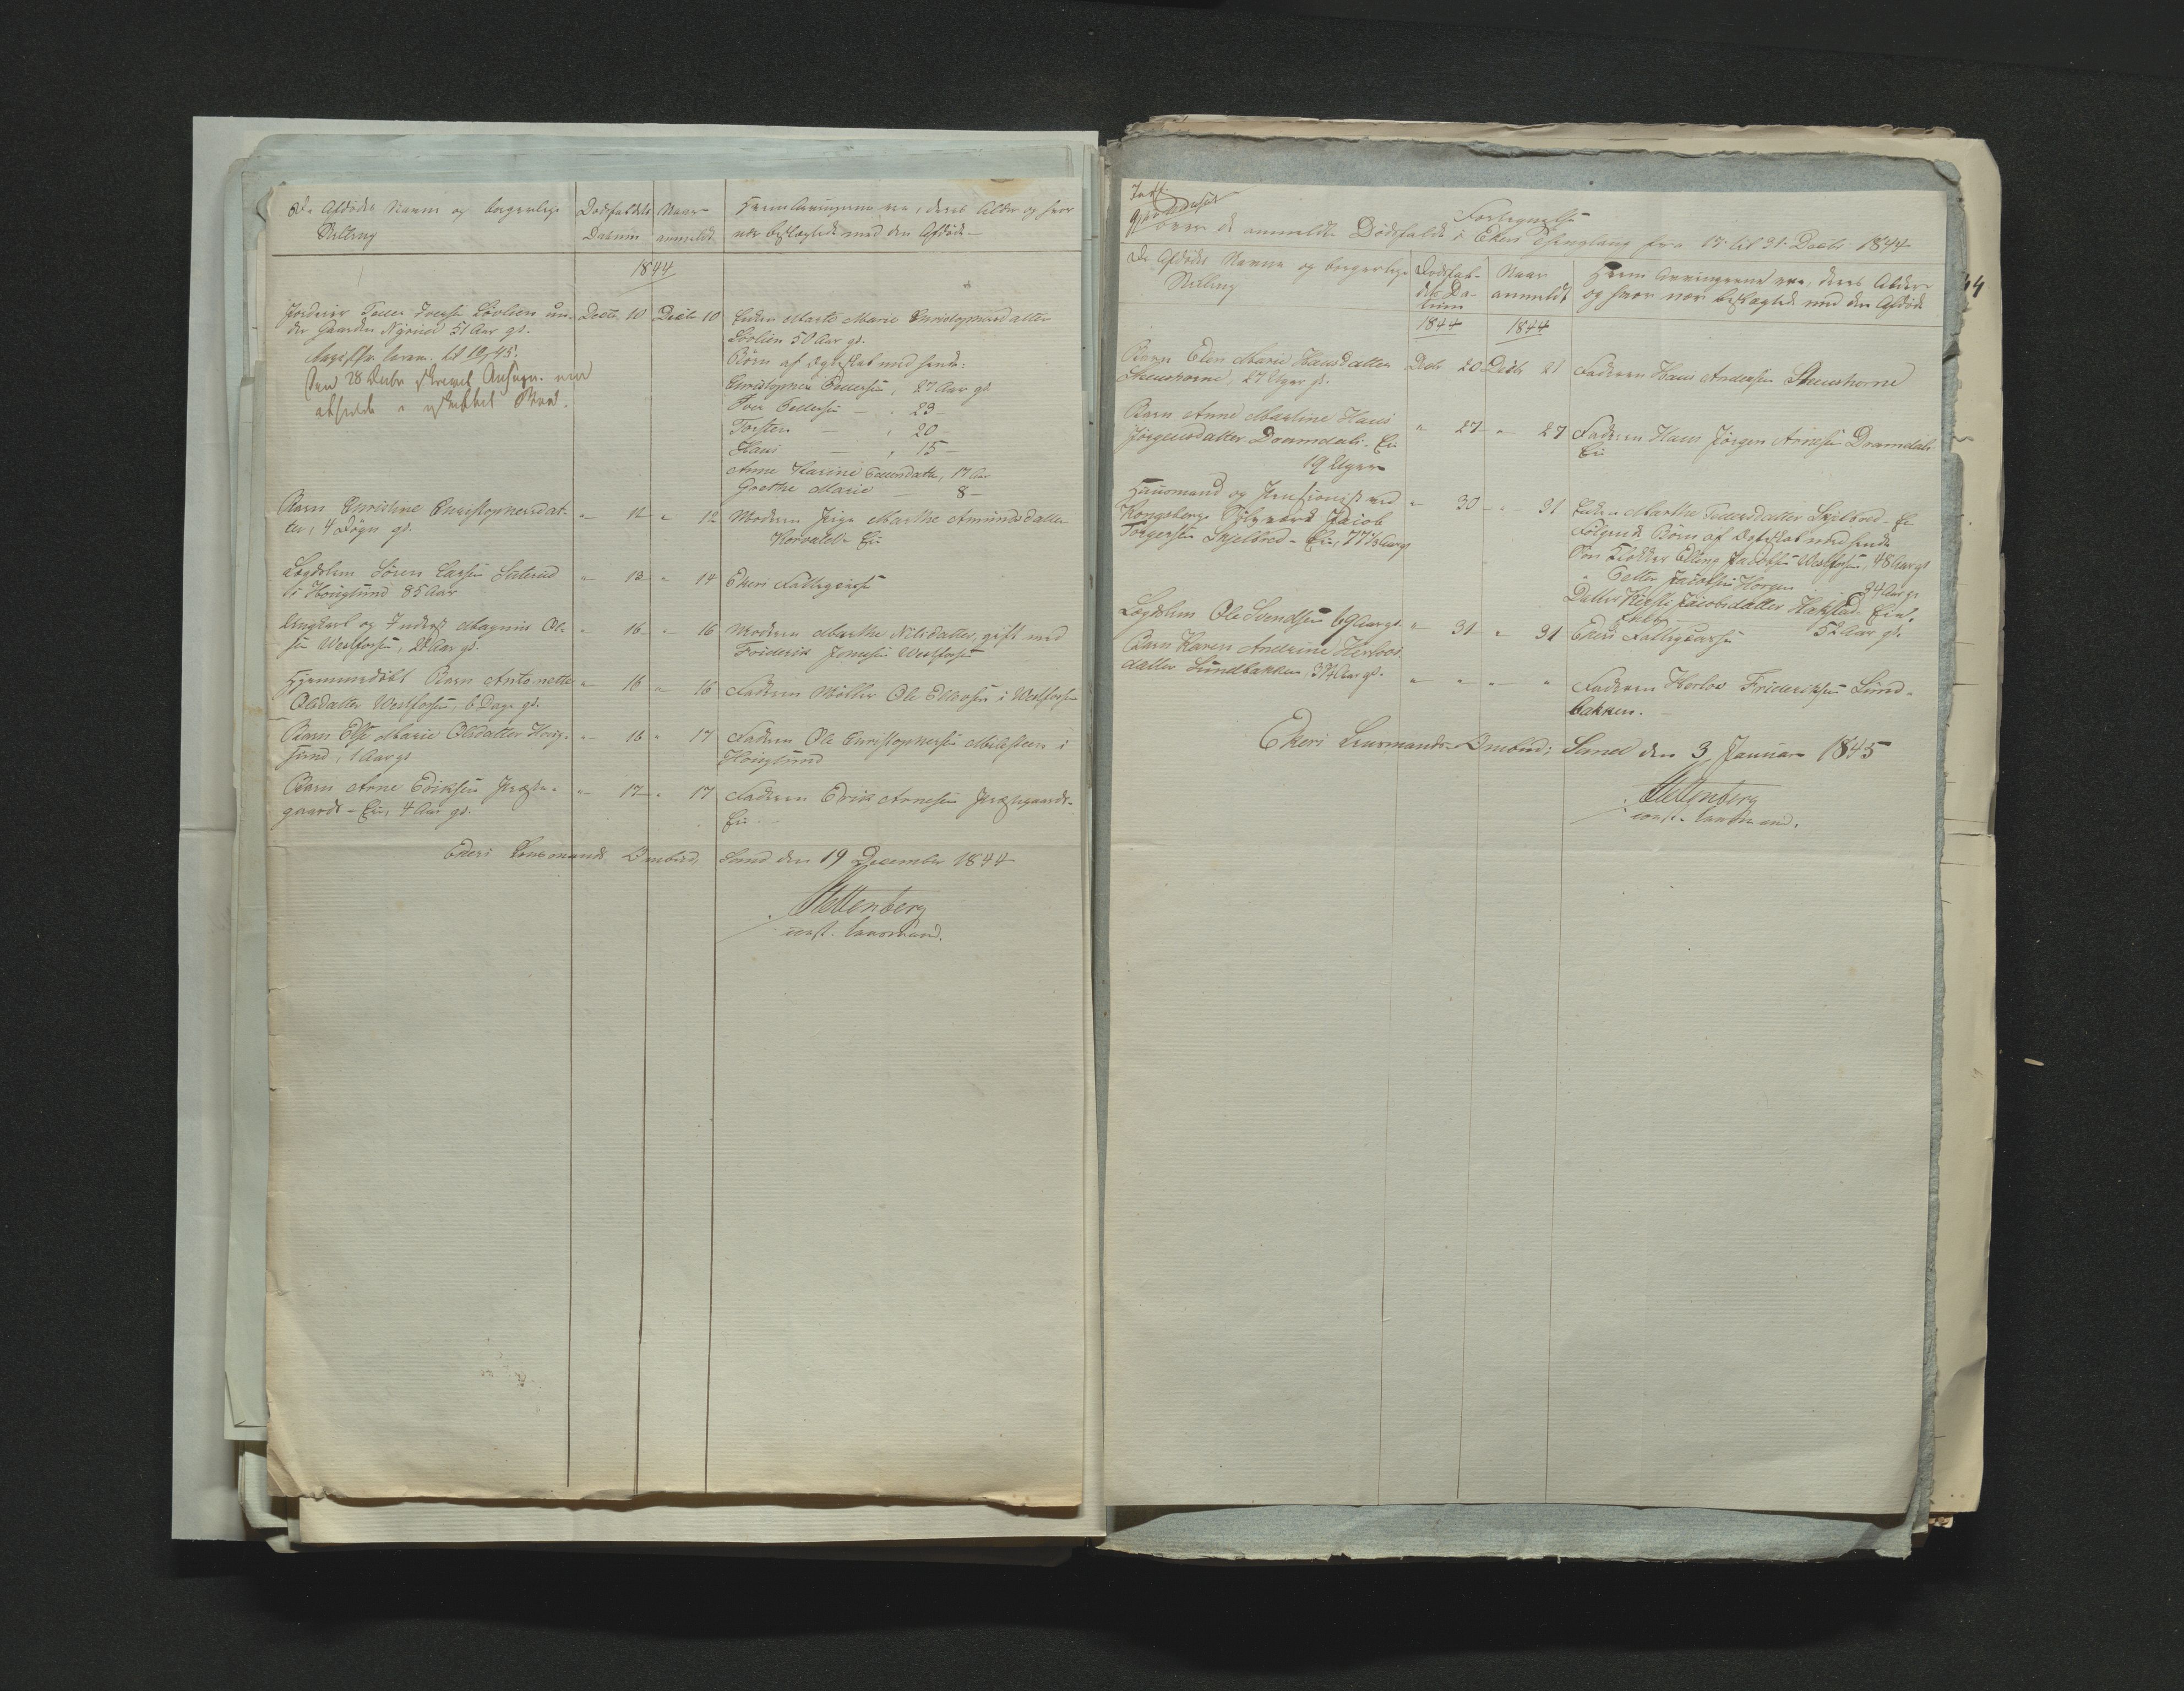 De Afdødes Navne og borgerlige
Stilling
Dødsfaldets
Datum
Naar
anmeldt
Hvem Arvingerne ere, deres Alder og hvor
nær beslægtede med den Afdøde
1844
Jordeier Peder Iversen Løvlien un-
der Gaarden 51 Aar gl.
Decbr 10
Decbr 10
Enken Marte Marie Christophersdatter
Løvlien 50 Aar gl.
Børn af Egteskab med hende:
Christopher Pedersen, 27 Aar gl.
Iver Pedersen — " 23 —
Torsten — " 20 —
Hans — " 15 —
Anne Karine Pedersdatter, 17 Aar
Grethe Marie — 8 —
til 19/45.
Den 28 Decbr
Barn Christine Christophersdat-
ter, 4 Døgn gl.
" 12 " 12
Moderen Pige Marthe Amundsdatter
Eie
Lægdslem Søren Larsen
i Hougsund 85 Aar
" 13 " 14
Ekers Fattigcasse
Ungkarl og Inderst Magnus Ol-
sen Westfossen, Aar gl.
" 16 " 16
Moderen Marthe Nilsdatter, gift med
Friderik Jonesen Westfossen
Hjemmedøbt Barn Antonette
Olsdatter Westfossen, 6 Dage gl.
" 16 " 16
Faderen Møller Ole Ellefsen i Westfossen
Barn Else Marie Olsdatter Houg-
sund, 1 Aar gl.
" 16 " 17
Faderen Ole Christophersen i
Hougsund
Barn Arne Eriksen Præste-
gaards-Eie, 4 Aar gl.
" 17 " 17
Faderen Erik Arnesen Præstegaards-
Eie.
Ekers Lensmands Ombud, Sand den 19 December 1844
Stettenberg
const. Lensmand.
Fortegnelse
over de anmeldte Dødsfalde i Ekers Thinglaug fra 17. til 31. Decbr 1844
De Afdødes Navne og borgerlige
Stilling
Dødsfal-
dets Da-
tum
Naar
anmeldt
Hvem Arvingerne ere, deres Alder
og hvor nær beslægtede med den Afdøde
1844
1844
Barn Elen Marie Hansdatter
Steenshorne, 27 Uger gl.
Decbr 20 Decbr 21
Faderen Hans Andersen Steenshorne
Barn Anne Martine Hans
Jørgensdatter Dramdals-Eie
19 Uger
" 27 " 27
Faderen Hans Jørgen Arnesen Dramdals-
Eie
Huusmand og Pensionist ved
Kongsbergs Sølvværk Jacob
Torgersen Skjelbred-Eie, 77 1/2 Aar gl
" 30 " 31
Enken Marthe Pedersdatter Skjelbred-Eie
Følgende Børn af Egteskab med hende
Søn Elling Jacobsen Westfossen, 48 Aar gl
" Petter Jacobsen Horgen 34 Aar gl
Datter Kirsti Jacobsdatter Hakstad-Eie,
52 Aar gl.
Lægdslem Ole Svendsen 69 Aar gl.
" 31 " 31
Ekers Fattigcasse
Barn Karen Andrine Herlovs-
datter Lundbakken, 3 1/4 Aar gl.
" " " "
Faderen Herlov Frideriksen Lund-
bakken.
Ekers Lensmands-Ombud; Sand den 3 Januar 1845
Stettenberg
const. Lensmand.